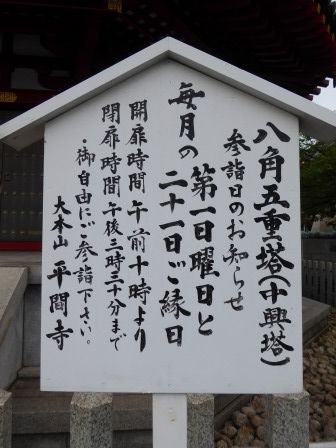 八角五重塔(中興塔)
参詣日のお知らせ
毎月の第一日曜日と
二十一日ご縁日
開扉時間 午前十時より
閉扉時間 午後三時三十分まで
・御自由にご参詣下さい。
大本山 平間寺